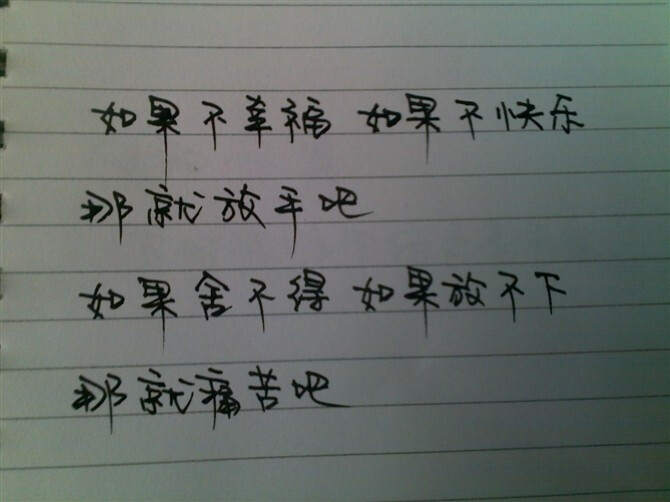 如果不幸福 如果不快乐
那就放手吧
如果舍不得 如果放不下
那就痛苦吧